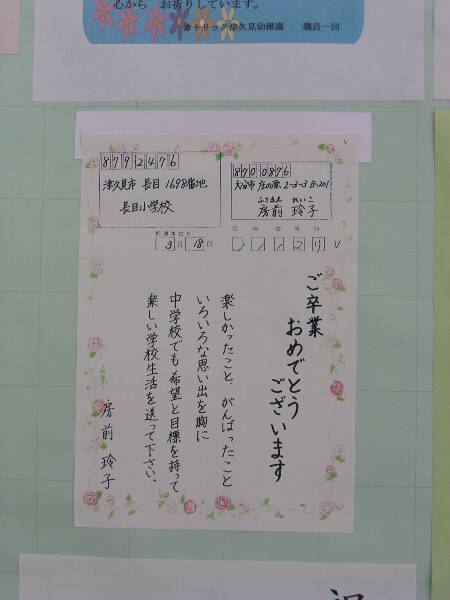 心から お祈りしています。
カトリック津久見幼稚園 職員一同
8792476
津久見市 長目 1698番地
長目小学校
8700876
大分市 庄の原 2-3-3 B-201
ふさまえ れいこ
房前 玲子
配達希望日
3月18日
ご卒業
おめでとう
ございます
楽しかったこと、がんばったこと
いろいろな思い出を胸に
中学校でも希望と目標を持って
楽しい学校生活を送って下さい。
房前 玲子